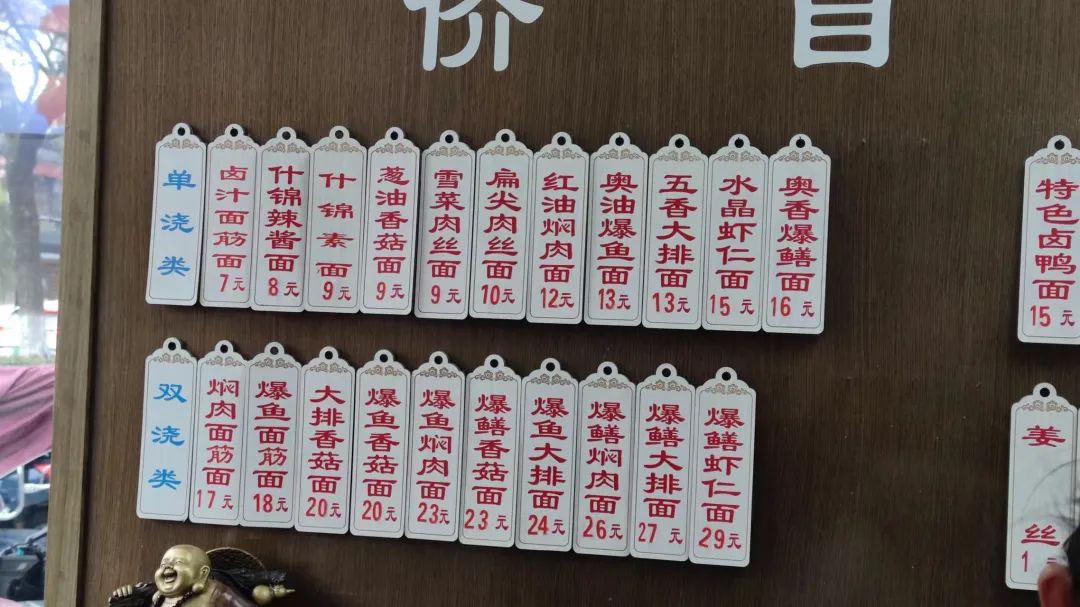 价目
单浇类
卤汁面筋面 7元
什锦辣酱面 8元
什锦素面 9元
葱油香菇面 9元
雪菜肉丝面 9元
扁尖肉丝面 10元
红油焖肉面 12元
奥油爆鱼面 13元
五香大排面 13元
水晶虾仁面 15元
奥香爆鳝面 16元
特色卤鸭面 15元
双浇类
焖肉面筋面 17元
爆鱼面筋面 18元
大排香菇面 20元
爆鱼香菇面 20元
爆鱼焖肉面 23元
爆鳝香菇面 23元
爆鱼大排面 24元
爆鳝焖肉面 26元
爆鳝大排面 27元
爆鳝虾仁面 29元
姜丝 1元